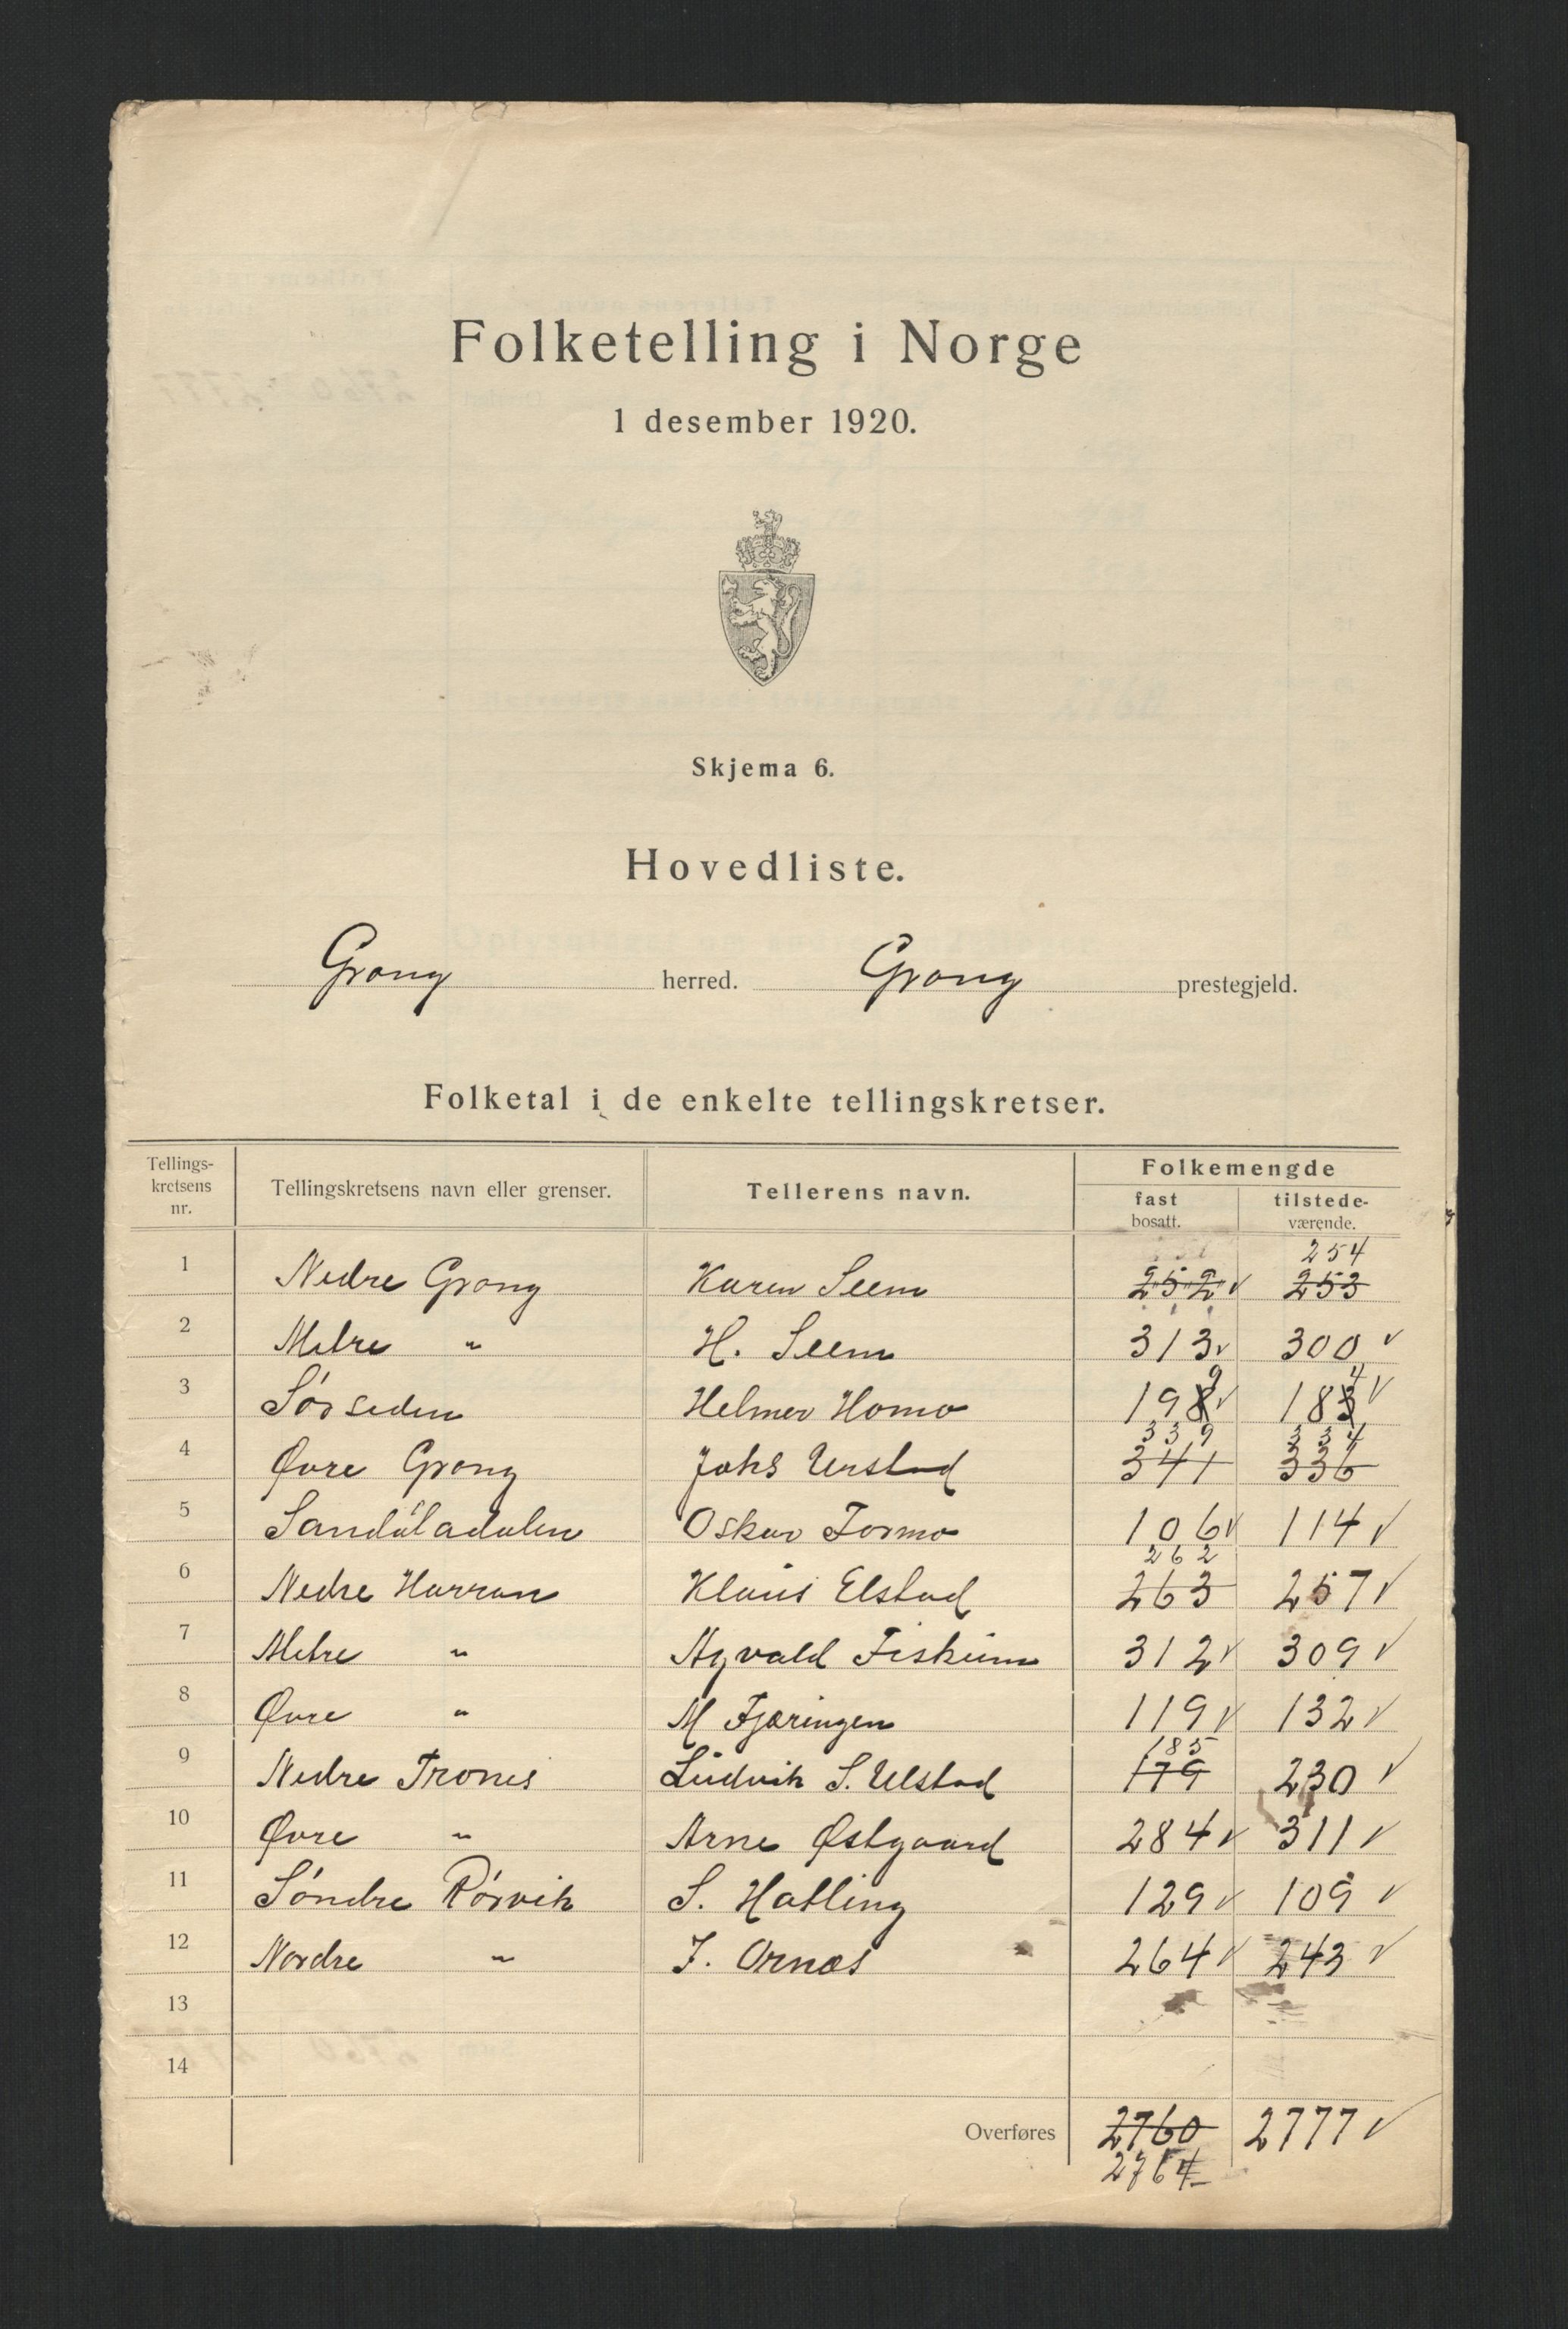 Folketelling i Norge
1 desember 1920.
Skjema 6.
Hovedliste.
Grong herred. Grong prestegjeld.
Folketal i de enkelte tellingskretser.
Tellings-
kretsens
nr.
Tellingskretsens navn eller grenser.
Tellerens navn.
Folkemengde
fast
bosatt.
tilstede-
værende.
254
1 Nedre Grong Karen Seem 252 ✓ 253
2 Midtre " H. Seem 313 ✓ 300 ✓
9 4
3 Sørsiden Helmer Homo 198 ✓ 183 ✓
339 334
4 Øvre Grong Johs Urstad 341 336
5 Sandøladalen Oskar Formo 106 ✓ 114 ✓
262
6 Nedre Harran Klaus Elstad 263 257 ✓
7 Midtre " Agvald Fiskum 312 ✓ 309 ✓
8 Øvre " M Fjæringen 119 ✓ 132 ✓
185
9 Nedre Trones Ludvik S. Ulstad 179 230 ✓
10 Øvre " Arne Østgaard 284 ✓ 311 ✓
11 Søndre Rørvik S. Hatling 129 ✓ 109 ✓
12 Nordre " J. Ornæs 264 ✓ 243 ✓
13
14
Overføres 2760 2777 ✓
2764